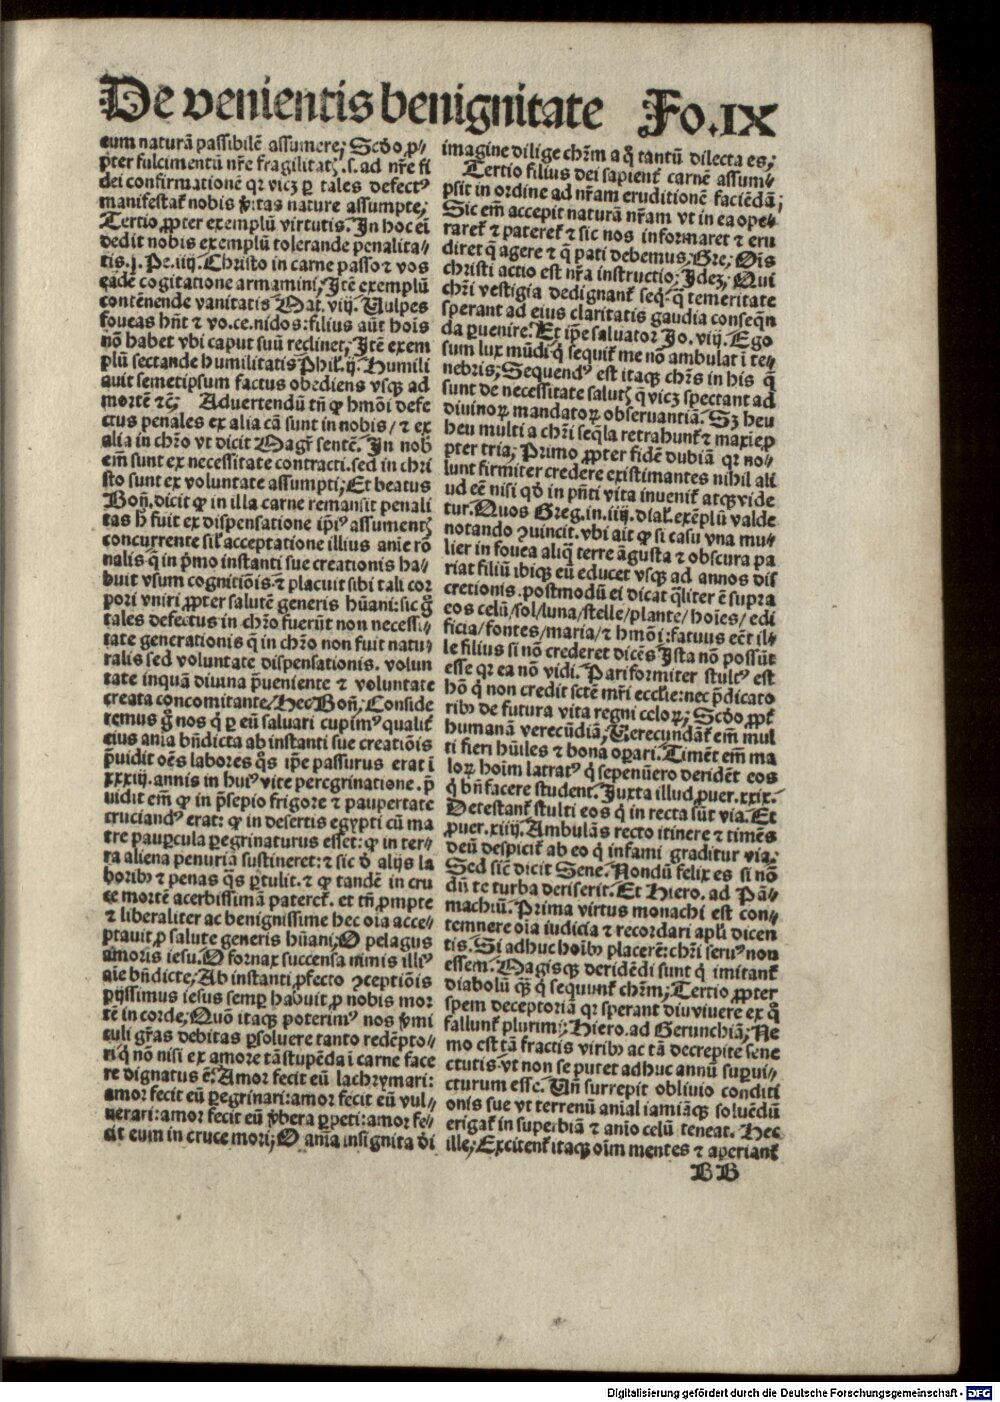 De venientis benignitate Fo.IX
eum naturā passibilē assumere; Scd̄o ꝓ⸗
pter fulcimentū nr̄e fragilitatꝭ .s. ad nr̄e fi
dei confirmationē qr vicꝫ ꝑ tales defectꝰ
manifestat᷑ nobis v̄itas nature assumpte;
Tertio ꝓpter exemplū virtutis. In hoc ei̅
dedit nobis exemplū tolerande penalita⸗
tis. j. Pe. iiij. Christo in carne passo ⁊ vos
eādē cogitatione armamini; Itē exemplū
contēnende vanitatis Mat. viij. Uulpes
foueas hn̄t ⁊ vo. ce. nidos: filius aūt hoīs
nō habet vbi caput suū reclinet; Itē exem
plū sectande humilitatis Phil. ij. Humili
auit semetipsum factus obediens vsqꝫ ad
mortē ⁊c̄; Aduertendū tn̄ ꝙ hmōi defe
ctus penales ex alia cā sunt in nobis / ⁊ ex
alia in chr̄o vt dicit Mag̅r sentē. In nob̄
em̄ sunt ex necessitate contracti. sed in chri
sto sunt ex voluntate assumpti; Et beatus
Bon̄. dicit ꝙ in illa carne remansit penali
tas h̄ fuit ex dispensatione ip̄iꝰ assumentꝭ
concurrente sil᷑ acceptatione illius anīe rō
nalis q̄ in p̄mo instanti sue creationis ha⸗
buit vsum cognitiōis ⁊ placuit sibi tali cor
pori vniri ꝓpter salutē generis hūani: sic g̊
tales defectus in chr̄o fuerūt non necessi⸗
tate generationis q̄ in chr̄o non fuit natu⸗
ralis sed voluntate dispensationis. volun
tate inquā diuina p̄ueniente ⁊ voluntate
creata concomitante / Hec Bon̄; Conside
remus g̊ nos q̇ ꝑ eū saluari cupimꝰ qualit᷑
eius anīa bn̄dicta ab instanti sue creatiōis
p̄uidit oēs labores q̊s ip̄e passurus erat ī
xxxiij. annis in huiꝰ vite peregrinatione. p̄
uidit em̄ ꝙ in p̄sepio frigore ⁊ paupertate
cruciandꝰ erat: ꝙ in desertis egypti cū ma
tre paupcula ꝑegrinaturus esset: ꝙ in ter⸗
ra aliena penuriā sustineret: ⁊ sic d̄ alijs la
boribꝫ ⁊ penas q̄s ꝑtulit. ⁊ ꝙ tandē in cru
ce mortē acerbissimā pateret᷑. et tn̄ ꝓmpte
⁊ liberaliter ac benignissime hec oīa acce⸗
ptauit ꝓ salute generis hūani; O pelagus
amoris iesu. O fornax succensa nimis illiꝰ
aīe bn̄dicte; Ab instanti ꝓfecto ꝯceptiōis
pijssimus iesus semꝑ habuit ꝓ nobis mor
tē in corde; Quō itaqꝫ poterimꝰ nos v̄mi
culi gr̄as debitas ꝑsoluere tanto redēpto⸗
ri q̇ nō nisi ex amore tā stupēda ī carne face
re dignatus ē. Amor fecit eū lachrymari:
amor fecit eū ꝑegrinari: amor fecit eū vul⸗
nerari: amor fecit eū v̄bera ꝑpeti: amor fe⸗
cit eum in cruce mori; O anīa insignita d̄i
imagine dilige chr̄m a q̊ tantū dilecta es;
Tertio filius dei sapient᷑ carnē assum⸗
psit in ordine ad nr̄am eruditionē faciēdā;
Sic em̄ accepit naturā nr̄am vt in ea ope⸗
raret᷑ ⁊ pateret᷑ ⁊ sic nos informaret ⁊ eru
diret q̄ agere ⁊ q̄ pati debemus; Gre; Oīs
christi actio est nr̄a instructio; Ideꝫ; Qui
chr̄i vestigia dedignant᷑ seq̇. q̄ temeritate
sperant ad eius claritatis gaudia conseqn̄
da ꝑuenire. Et ip̄e saluator Jo. viij. Ego
sum lux mūdi q̇ sequit᷑ me nō ambulat ī te⸗
nebris; Sequendꝰ est itaqꝫ chr̄s in his q̄
sunt de necessitate salutꝭ q̄ vicꝫ spectant ad
diuinoꝝ mandatoꝝ obseruantiā. Sꝫ heu
heu multi a chr̄i seq̄la retrahunt᷑ ⁊ maxīe ꝓ
pter tria; Primo ꝓpter fidē dubiā qr no⸗
lunt firmiter credere existimantes nihil ali
ud eē nisi qd̄ in pn̄ti vita inuenit᷑ atqꝫ vide
tur. Quos Greg. in. iiij. dial᷑. exēplū valde
notando ꝯuincit. vbi ait ꝙ si casu vna mu⸗
lier in fouea aliq̄ terre āgusta ⁊ obscura pa
riat filiū ibiqꝫ eū educet vsqꝫ ad annos dis
cretionis. postmodū ei dicat q̄liter ē supra
eos celū / sol / luna / stelle / plante / hoīes / edi
ficia / fontes / maria / ⁊ hmōi: fatuus eēt il⸗
le filius si nō crederet dicēs Ista nō possūt
esse qr ea nō vidi. Pariformiter stultꝰ est
hō q̇ non credit sctē mr̄i ecclīe: nec p̄dicato
ribꝫ de futura vita regni celoꝝ; Scd̄o ꝓpt᷑
humanā verecūdiā; Uerecundāt᷑ em̄ mul
ti fieri hūiles ⁊ bona oꝑari. Timēt em̄ ma
loꝝ hoīm latratꝰ q̇ sepenūero derident eos
q̇ bn̄ facere student. Juxta illud ꝓuer. xxix.
Detestant᷑ stulti eos q̇ in recta sūt via. Et
ꝓuer. xiiij. Ambulās recto itinere ⁊ timēs
deū despicit᷑ ab eo q̇ infami graditur via.
Sed sic̄ dicit Sene. Nondū felix es si nō
dū te turba deriserit. Et Hiero. ad Pā⸗
machiū. Prima virtus monachi est con⸗
temnere oīa iudicia ⁊ recordari apl̄i dicen
tis. Si adhuc hoībꝫ placerē: chr̄i seruꝰ non
essem. Magisqꝫ deridēdi sunt q̇ imitant᷑
diabolū qꝫ̄ q̇ sequunt᷑ chr̄m; Tertio ꝓpter
spem deceptoriā qr sperant diu viuere ex q̊
fallunt᷑ plurimi; Hiero. ad Gerunchiā; Ne
mo est tā fractis viribꝫ ac tā decrepite sene
ctutis. vt non se putet adhuc annū suꝑui⸗
cturum esse. Un̄ surrepit obliuio conditi
onis sue vt terrenū anīal iamiāqꝫ soluēdū
erigat᷑ in superbiā ⁊ anīo celū teneat. Hec
ille; Excitent᷑ itaqꝫ oīm mentes ⁊ aperiant᷑
BB
Digitalisierung gefördert durch die Deutsche Forschungsgemeinschaft - DFG